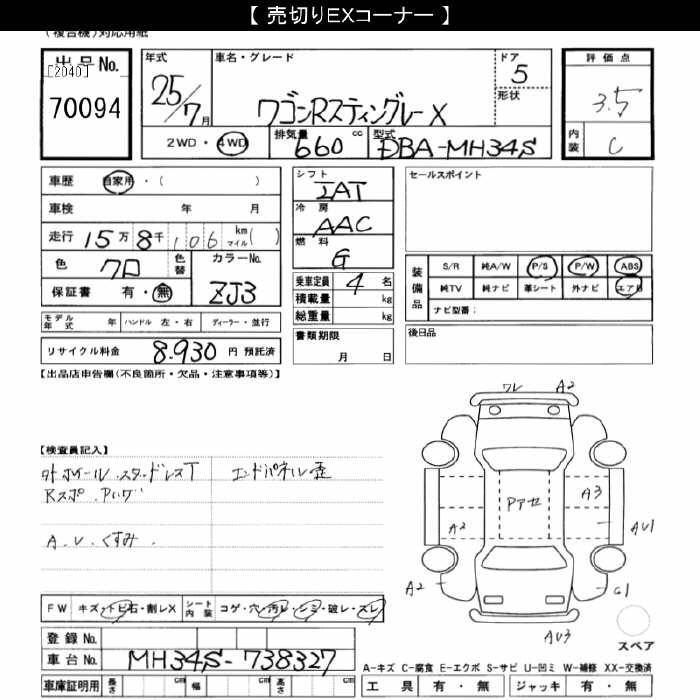 【 売切りEXコーナー 】
(複合機)対応用紙
出品No.
[2040]
70094
年式
25/7月
車名・グレード
ワゴンRスティングレーX
ドア
5
形状
評価点
3.5
内装
C
2WD・4WD
排気量
660 cc
型式
DBA-MH34S
車歴 自家用・( )
車検 年 月
走行 15万8千106 km マイル( )
色 クロ 色替
カラーNo.
ZJ3
保証書 有・無
モデル年式 年 ハンドル 左・右 ディーラー・並行
リサイクル料金 8.930 円 預託済
シフト
IAT
冷房
AAC
燃料
G
乗車定員 4 名
積載量 kg
総重量 kg
書類期限
月 日
セールスポイント
装備品
S/R 純A/W P/S P/W ABS
純TV 純ナビ 革シート 外ナビ エアB
ナビ型番:
後日品
【出品店申告欄(不良箇所・欠品・注意事項等)】
【検査員記入】
外ホイール スタッドレスT エンドパネル歪
Rスポ Pハンドル
A.U.くすみ.
ワレ A2
Pアセ
A3
A2
AU1
A2
G1
AU3
スペア
FW キズ・トビ石・割レX シート内装 コゲ・穴・汚レ・シミ・破レ・スレ
登録No.
車台No. MH34S-738327
車庫証明用 長さ cm 幅 cm 高さ cm
A−キズ C−腐食 E−エクボ S−サビ U−凹ミ W−補修 XX−交換済
工具 有・無 ジャッキ 有・無